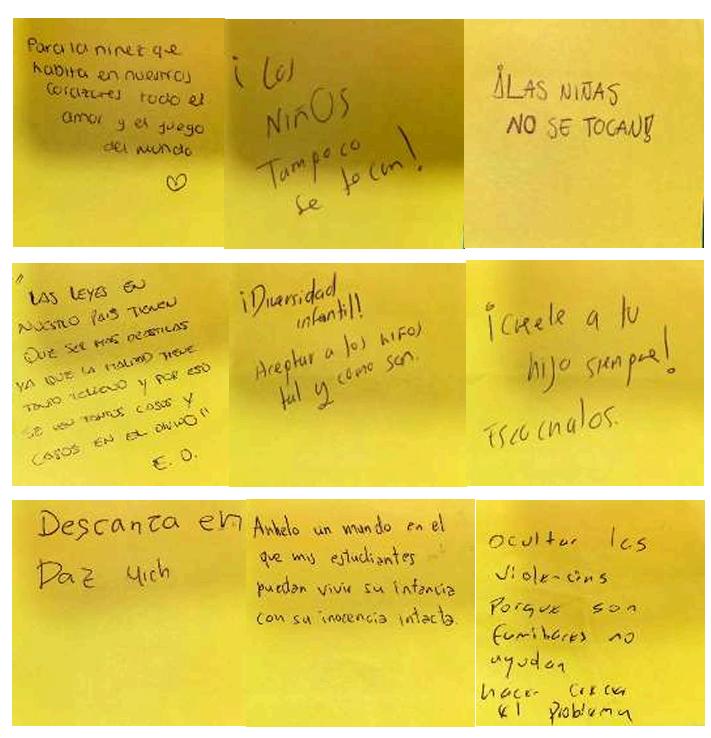 Para la niñez que
habita en nuestros
corazones todo el
amor y el juego
del mundo
¡Los
NIÑOS
Tampoco
se tocan!
¡LAS NIÑAS
NO SE TOCAN!
"LAS LEYES EN
NUESTRO PAIS TIENEN
QUE SER MAS DRASTICAS
YA QUE LA MALDAD TIENE
TANTO TERRENO Y POR ESO
SE VEN TANTOS CASOS Y
CASOS EN EL OLVIDO"
E. O.
¡Diversidad
infantil!
Aceptar a los niños
tal y como son.
¡Creele a tu
hijo siempre!
Escuchalos.
Descanza en
Paz Yich
Anhelo un mundo en el
que mis estudiantes
puedan vivir su infancia
con su inocencia intacta.
Ocultar las
violencias
Porque son
familiares no
ayudan
hacen crecer
el problema